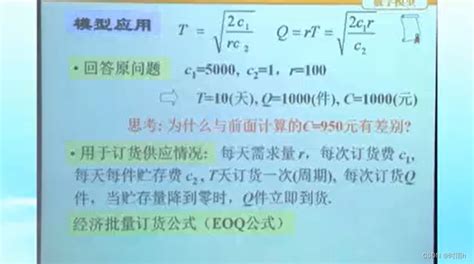 数学模型
模型应用 T = √(2c₁/rc₂) Q = rT = √(2c₁r/c₂)
• 回答原问题 c₁=5000, c₂=1, r=100
⇨ T=10(天), Q=1000(件), C=1000(元)
思考: 为什么与前面计算的C=950元有差别?
• 用于订货供应情况: 每天需求量 r, 每次订货费 c₁,
每天每件贮存费 c₂, T天订货一次(周期), 每次订货Q
件, 当贮存量降到零时, Q件立即到货.
经济批量订货公式（EOQ公式）